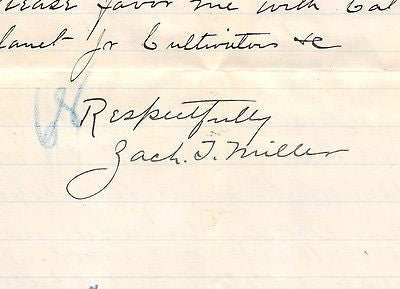 lease favor me with Cat
lanet Jr Cultivators &c
Respectfully
Zach. T. Miller